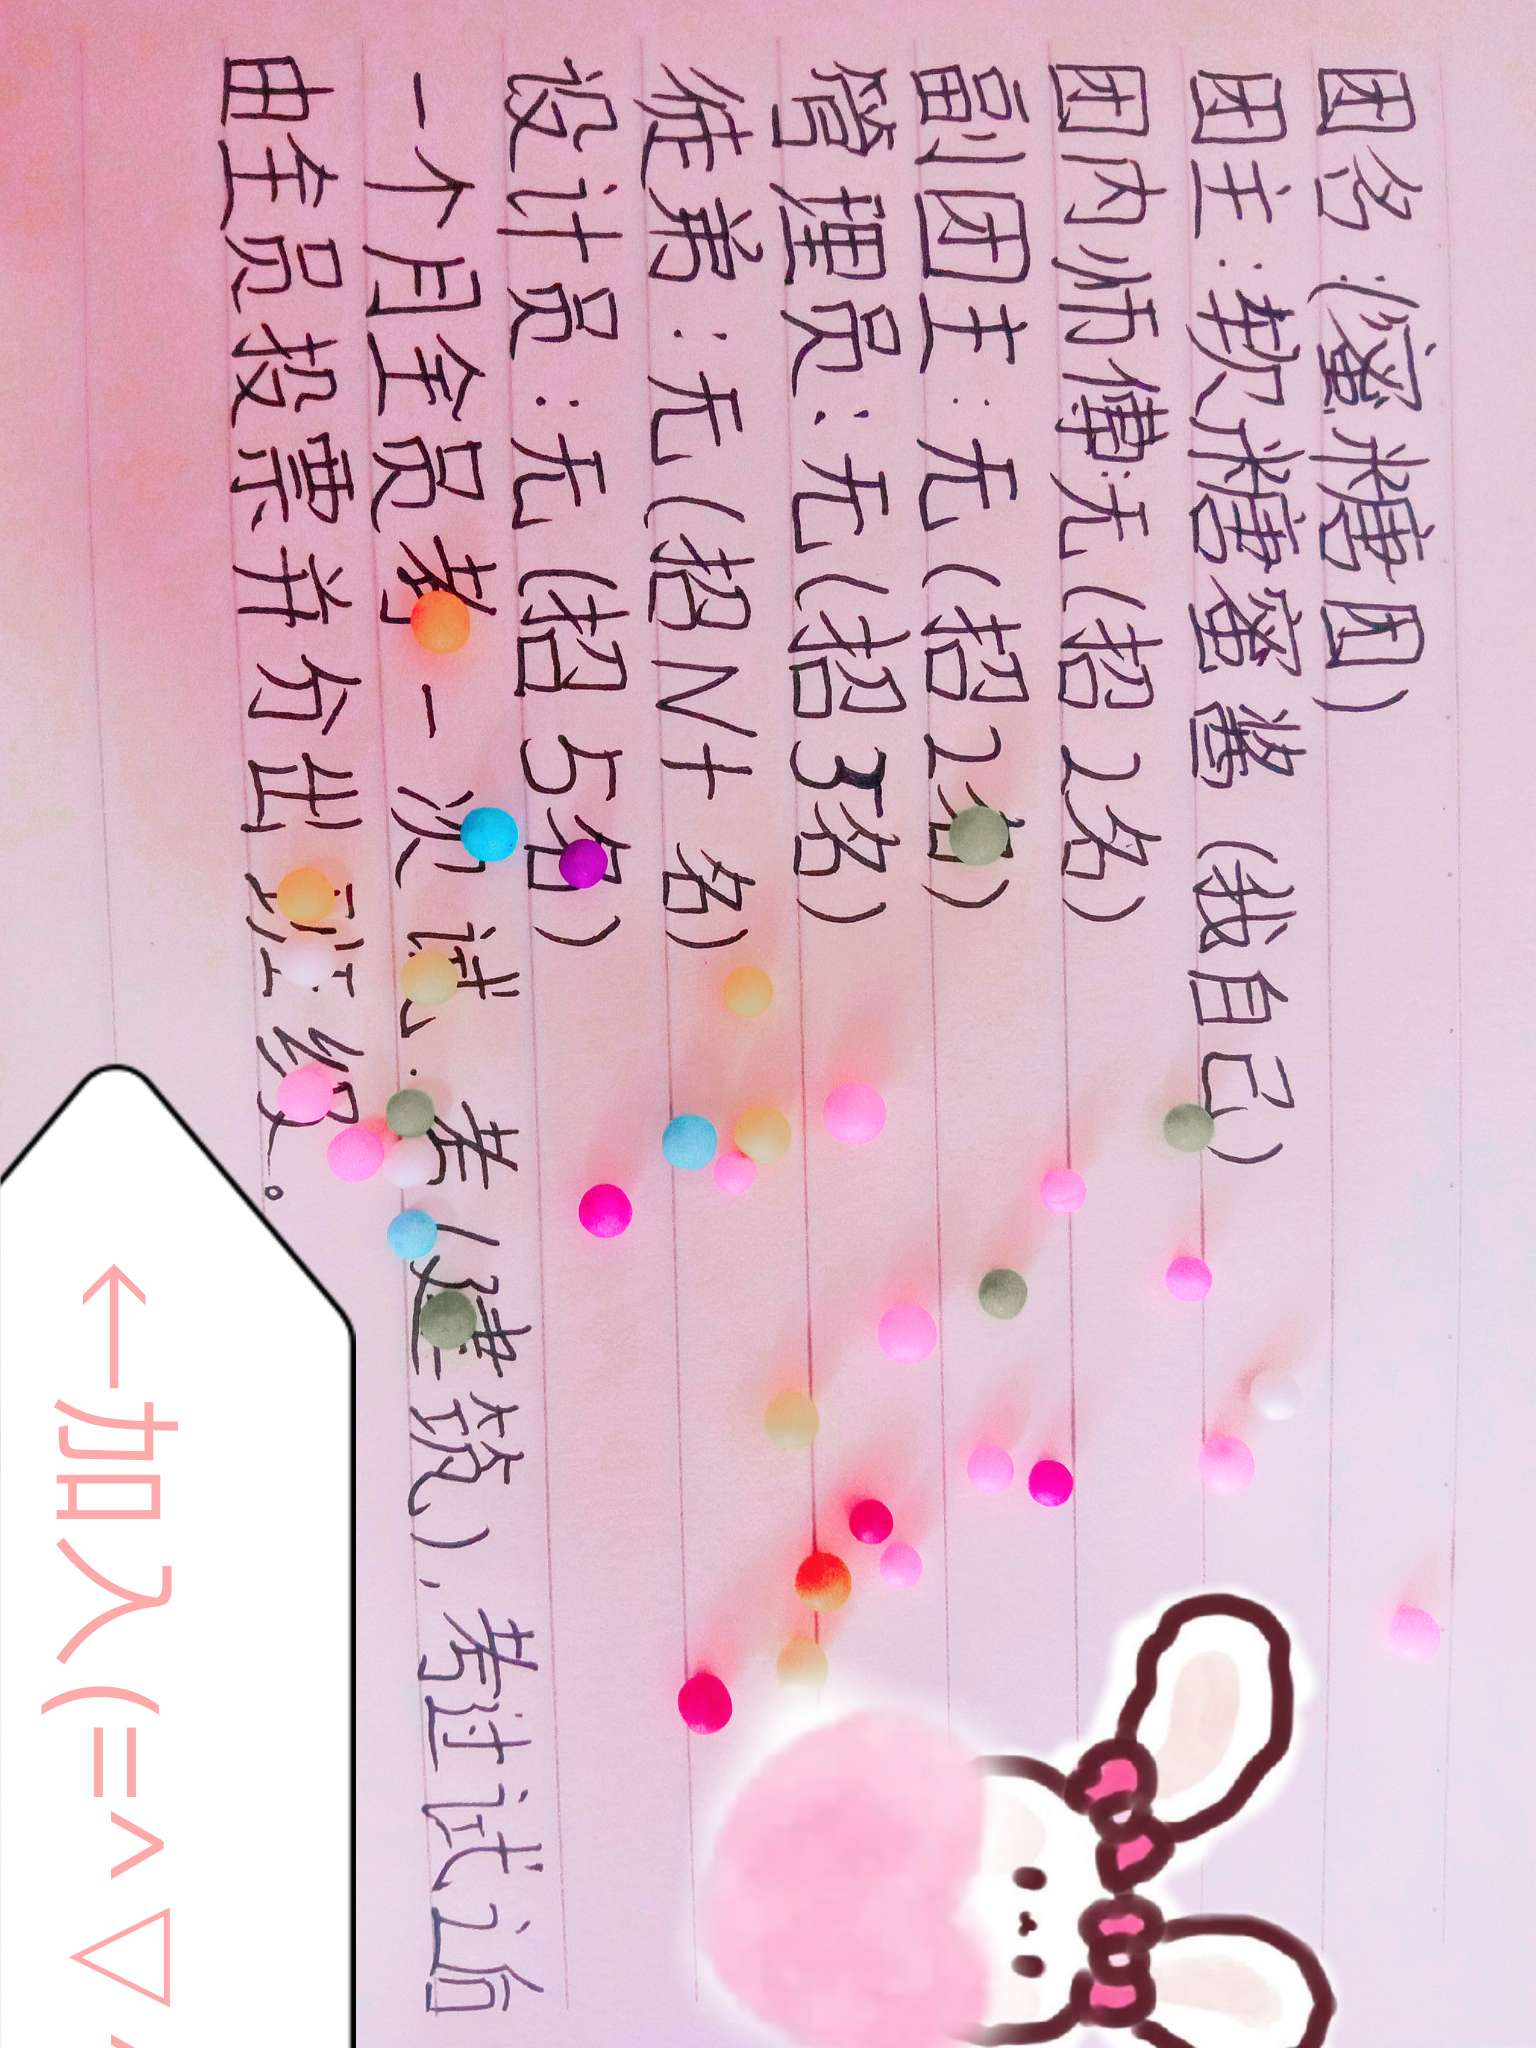 团名（蜜糖团）
团主：软糖蜜酱（我自己）
团内师傅：无（招2名）
副团主：无（招2名）
管理员：无（招3名）
徒弟：无（招N+名）
设计员：无（招5名）
一个月全员考一次试．考（建筑），考过试过后
由全员投票并分出班级。
←加入(=^▽